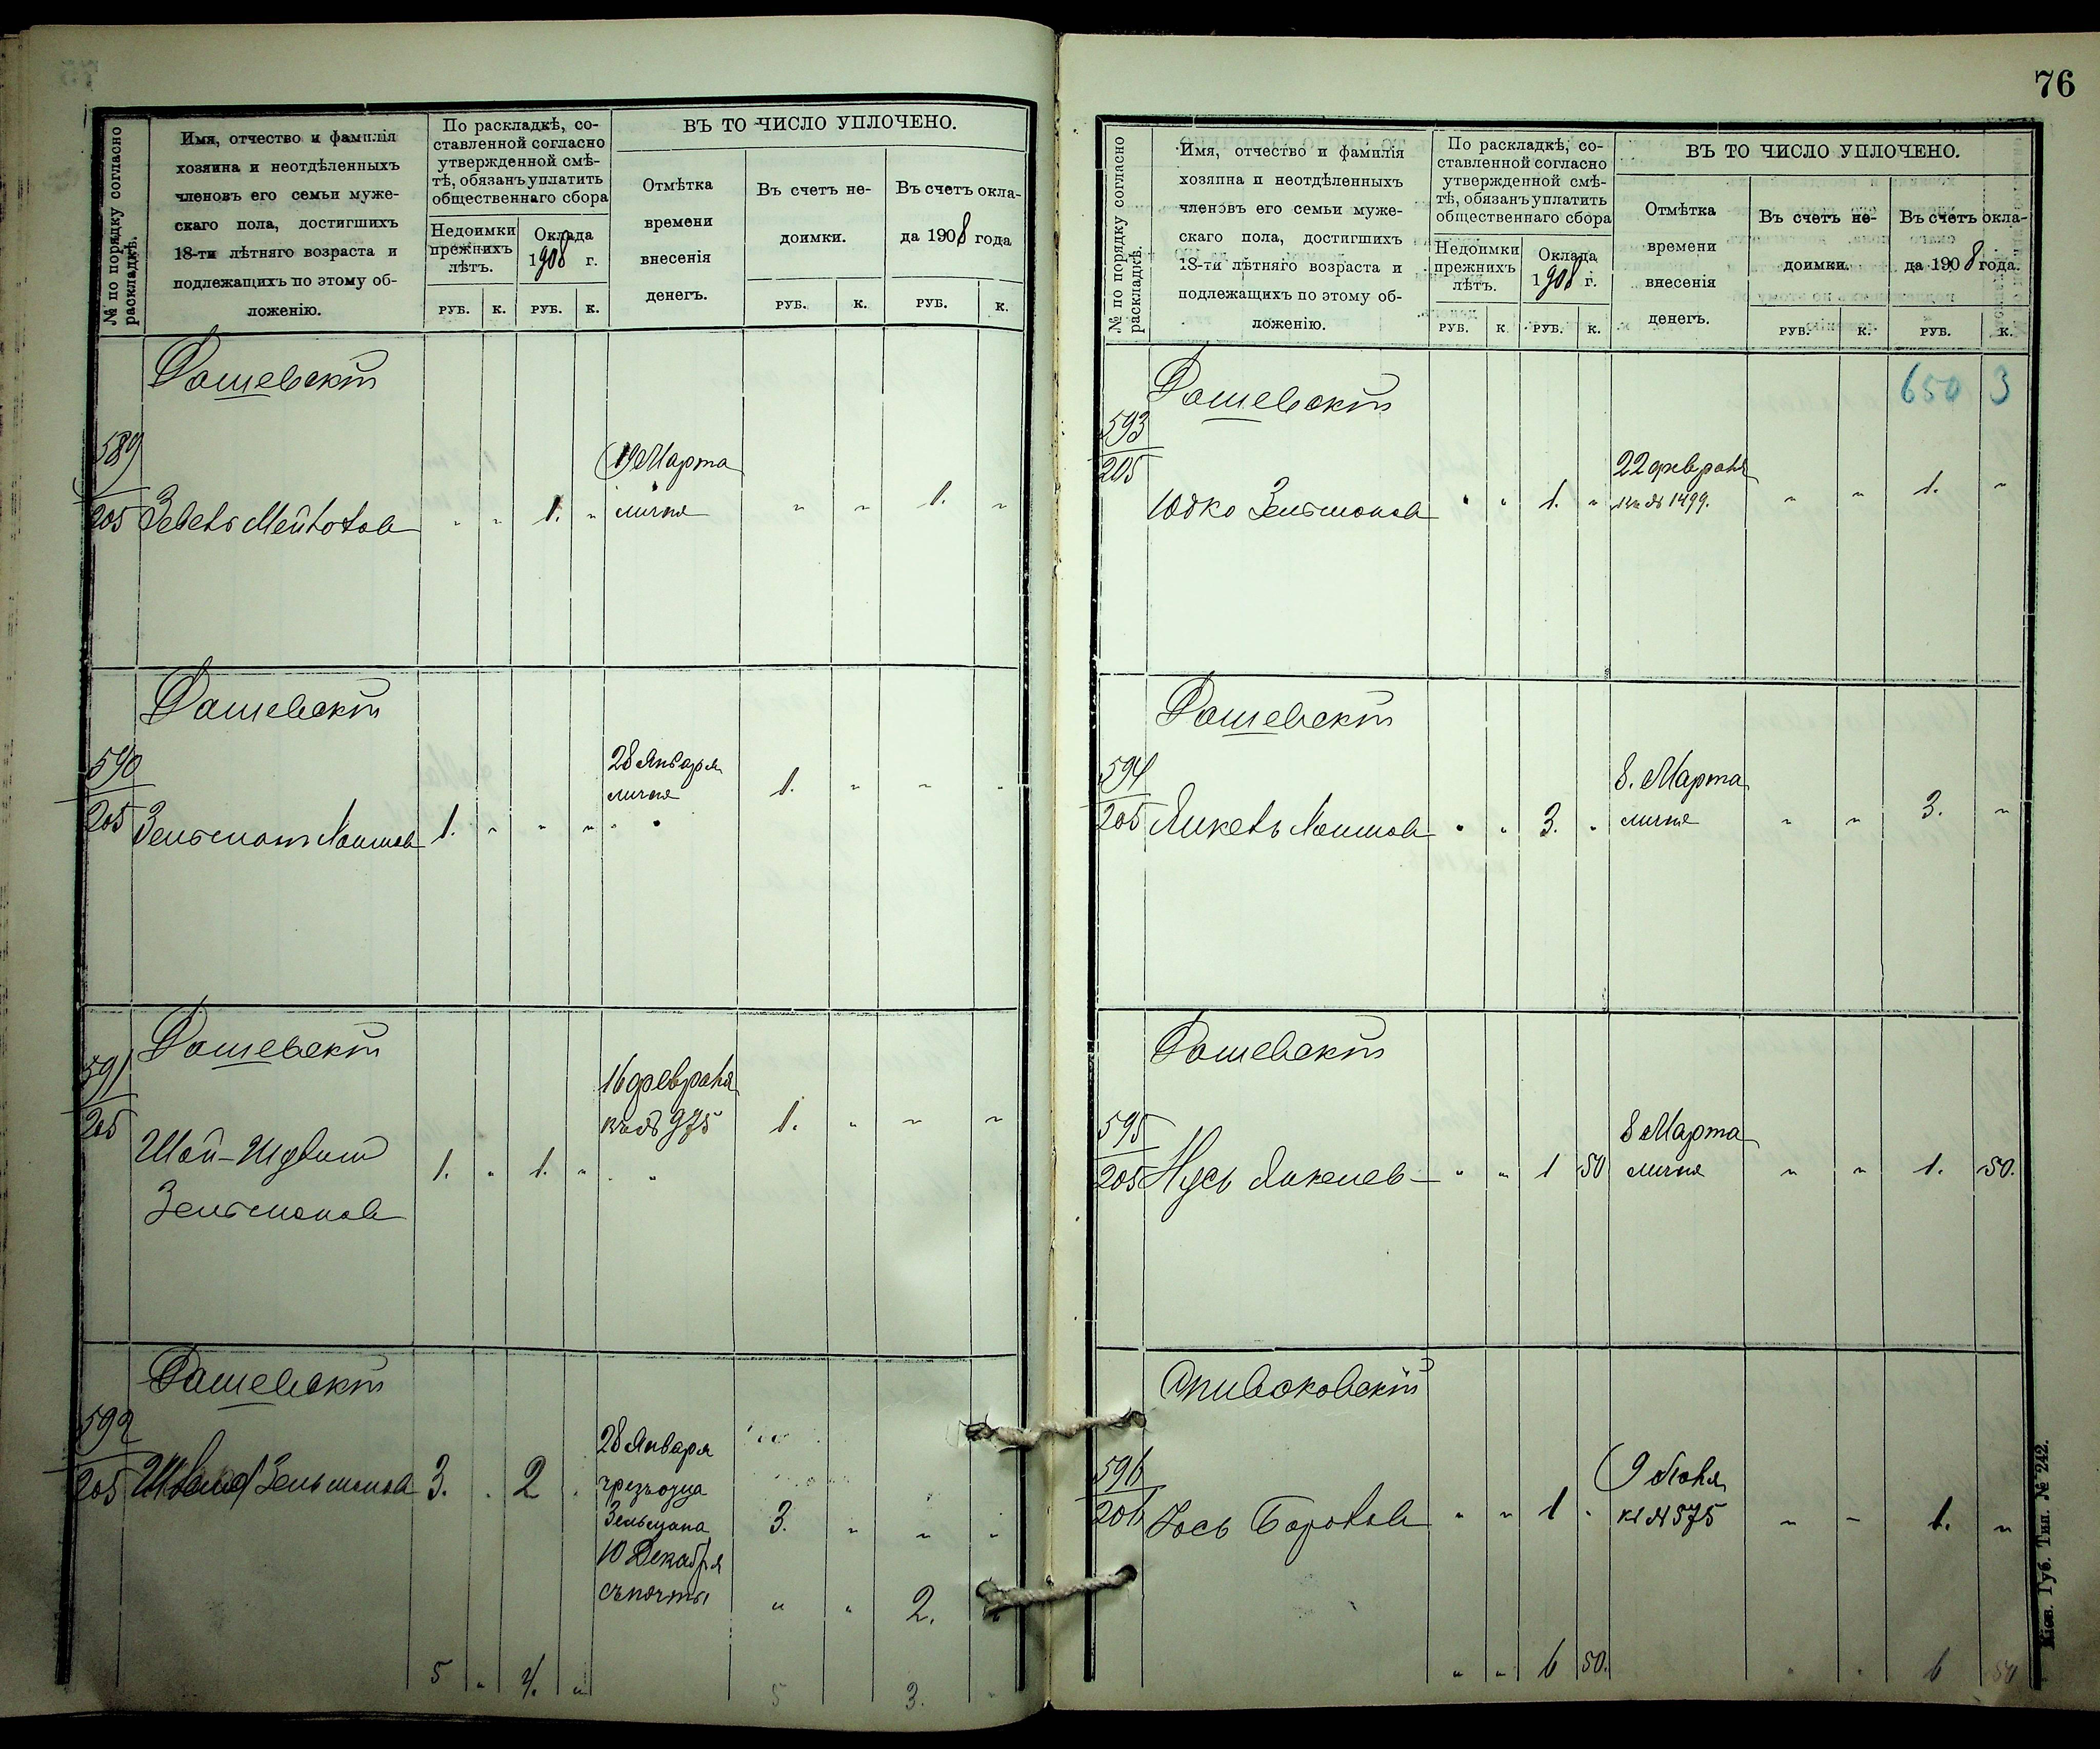 № по порядку согласно
раскладкѣ.
Имя, отчество и фамилія
хозяина и неотдѣленныхъ
членовъ его семьи муже-
скаго пола, достигшихъ
18-ти лѣтняго возраста и
подлежащихъ по этому об-
ложенію.
По раскладкѣ, со-
ставленной согласно
утвержденной смѣ-
тѣ, обязанъ уплатить
общественнаго сбора
Недоимки
прежнихъ
лѣтъ.
Оклада
1908 г.
РУБ. К. РУБ. К.
ВЪ ТО ЧИСЛО УПЛОЧЕНО.
Отмѣтка
времени
внесенія
денегъ.
Въ счетъ не-
доимки.
Въ счетъ окла-
да 1908 года
РУБ. К. РУБ. К.
Дашевскій
589
205
19 Марта
лично
" " 1. " " " 1. "
Дашевскій
590
205
Зельманъ
1. " " "
28 Января
лично
1. " " "
Дашевскій
591
205
16 февраля
кв № 975
1. " 1. " 1. " " "
Зельманов
Дашевскій
592
205
Зельманов
3. . 2 .
28 Января
чрез отца
Зельмана
3. " " "
10 Декабря
съ почты
" " 2.
5 " 4. " 5 3. "
76
№ по порядку согласно
раскладкѣ.
Имя, отчество и фамилія
хозяина и неотдѣленныхъ
членовъ его семьи муже-
скаго пола, достигшихъ
18-ти лѣтняго возраста и
подлежащихъ по этому об-
ложенію.
По раскладкѣ, со-
ставленной согласно
утвержденной смѣ-
тѣ, обязанъ уплатить
общественнаго сбора
Недоимки
прежнихъ
лѣтъ.
Оклада
1908 г.
РУБ. К. РУБ. К.
ВЪ ТО ЧИСЛО УПЛОЧЕНО.
Отмѣтка
времени
внесенія
денегъ.
Въ счетъ не-
доимки.
Въ счетъ окла-
да 1908 года.
РУБ. К. РУБ. К.
650 3
Дашевскій
593
205
Юдко Зельманов
" " 1. "
22 февраля
кв № 1499.
" " 1. "
Дашевскій
594
205
" " 3. "
8. Марта
лично
" " 3. "
Дашевскій
595
205
Нусь Янкелев
" " 1 50
8 Марта
лично
" " 1. 50.
Спиваковскій
596
206
Іось
" " 1 "
9 Іюня
кв № 575
" " 1. "
" " 6 50. " " 6 50
Кіев. Губ. Тип. № 242.